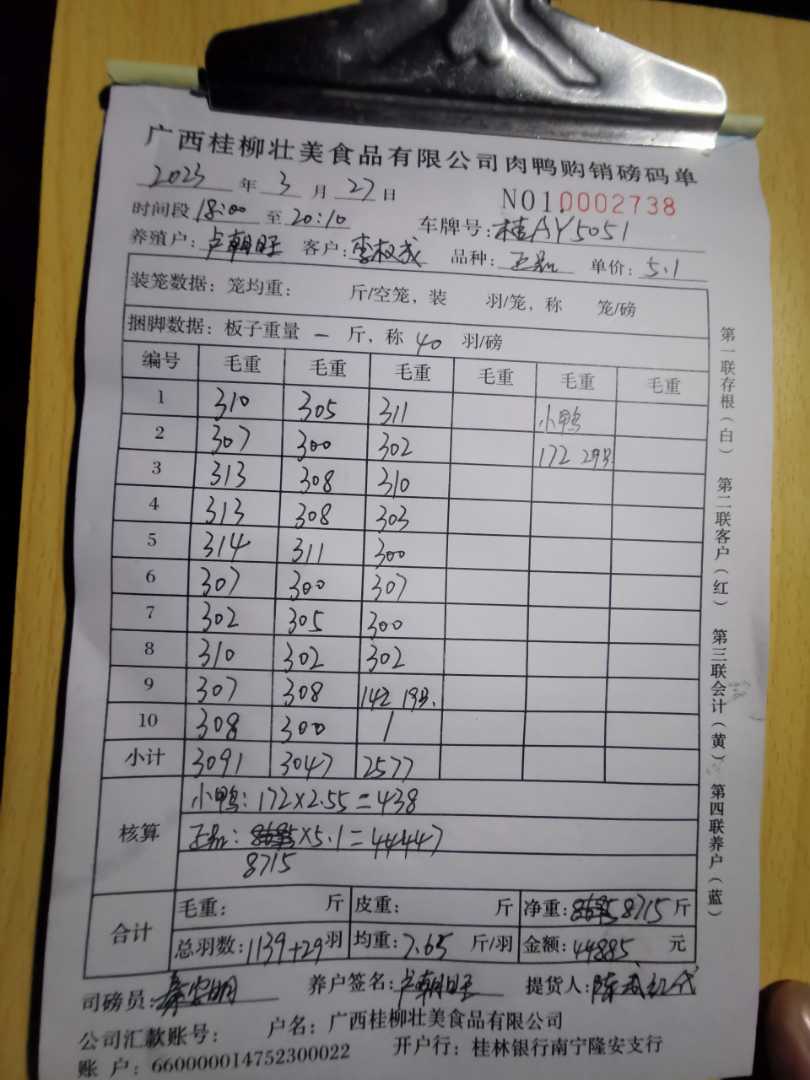 广西桂柳壮美食品有限公司肉鸭购销磅码单
2023 年 3 月 27 日 NO10002738
时间段 18:00 至 20:10 车牌号: 桂AY5051
养殖户: 卢朝旺 客户: 李权成 品种: 正品 单价: 5.1
装笼数据: 笼均重: 斤/空笼, 装 羽/笼, 称 笼/磅
捆脚数据: 板子重量 一 斤, 称 40 羽/磅
编号 毛重 毛重 毛重 毛重 毛重 毛重
1 310 305 311 小鸭
2 307 300 302 172 29只
3 313 308 310
4 313 308 303
5 314 311 300
6 307 300 307
7 302 305 300
8 310 302 302
9 307 308 142 19只.
10 308 300 /
小计 3091 3047 2577
核算
小鸭: 172×2.55=438
正品: ×5.1=44447
8715
合计
毛重: 斤 皮重: 斤 净重: 8715 斤
总羽数: 1139+29 羽 均重: 7.65 斤/羽 金额: 44885 元
司磅员: 养户签名: 卢朝旺 提货人:
公司汇款账号: 户名: 广西桂柳壮美食品有限公司
账 户: 660000014752300022 开户行: 桂林银行南宁隆安支行
第一联存根(白) 第二联客户(红) 第三联会计(黄) 第四联养户(蓝)